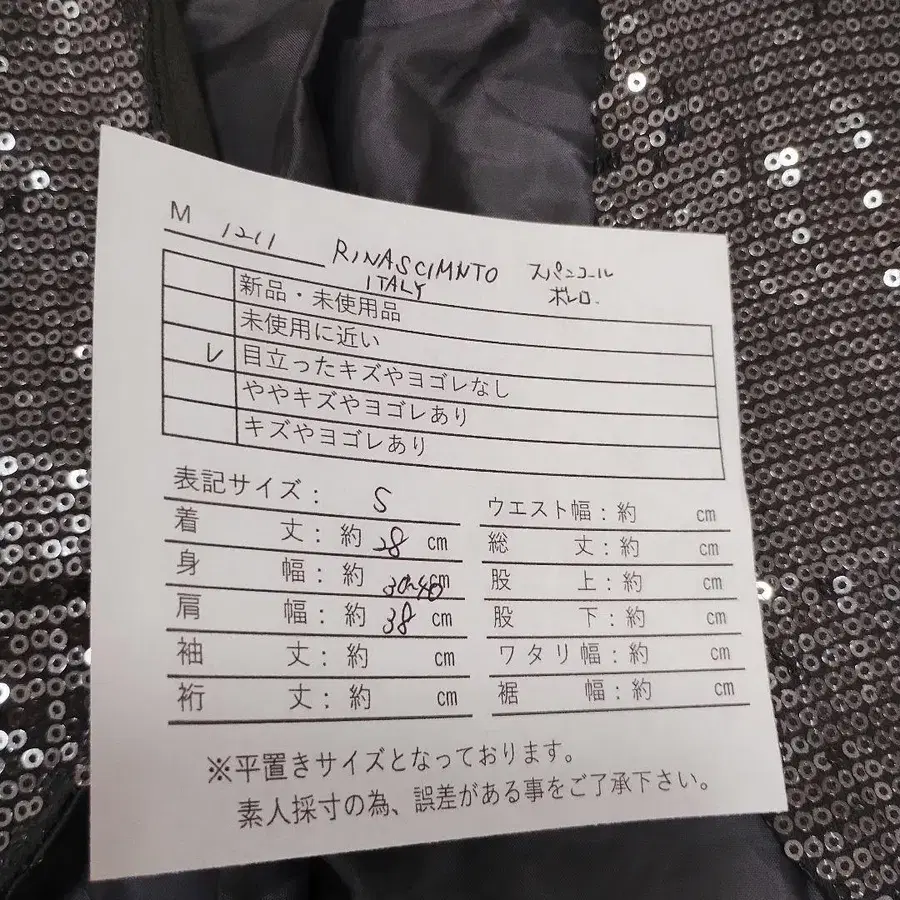 M 1211 RINASCIMNTO スパンコール
ITALY ボレロ.
新品・未使用品
未使用に近い
V 目立ったキズやヨゴレなし
ややキズやヨゴレあり
キズやヨゴレあり
表記サイズ: S
着丈:約 28 cm
身幅:約 30~40 cm
肩幅:約 38 cm
袖丈:約 cm
裄丈:約 cm
ウエスト幅:約 cm
総丈:約 cm
股上:約 cm
股下:約 cm
ワタリ幅:約 cm
裾幅:約 cm
※平置きサイズとなっております。
素人採寸の為、誤差がある事をご了承下さい。